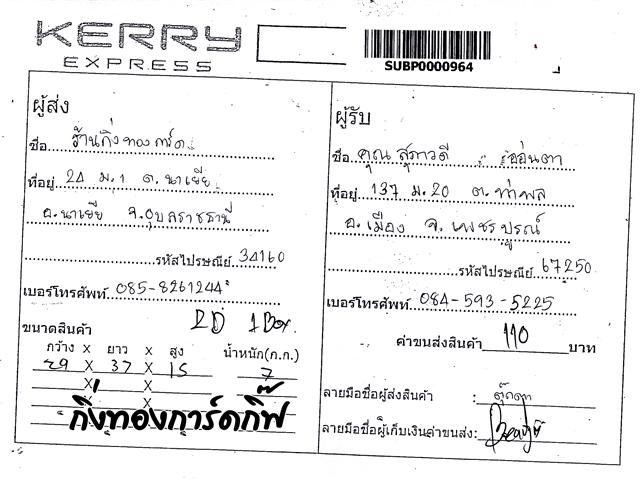 KERRY
EXPRESS
SUBP0000964
ผู้ส่ง
ชื่อ ร้านกิ่งทองการ์ด
ที่อยู่ 24 ม.1 ต.นาเยีย
อ.นาเยีย จ.อุบลราชธานี
รหัสไปรษณีย์ 34160
เบอร์โทรศัพท์ 085-8261244
ขนาดสินค้า 2D 1 Box
กว้าง X ยาว X สูง น้ำหนัก(ก.ก.)
29 X 37 X 15 7
X X
X
กิ่งทองการ์ดกิ๊ฟ
ผู้รับ
ชื่อ คุณ สุภาวดี อ่อนตา
ที่อยู่ 137 ม.20 ต.ท่าพล
อ.เมือง จ.เพชรบูรณ์
รหัสไปรษณีย์ 67250
เบอร์โทรศัพท์ 084-593-5225
ค่าขนส่งสินค้า 110 บาท
ลายมือชื่อผู้ส่งสินค้า : ตุ๊กตา
ลายมือชื่อผู้เก็บเงินค่าขนส่ง: